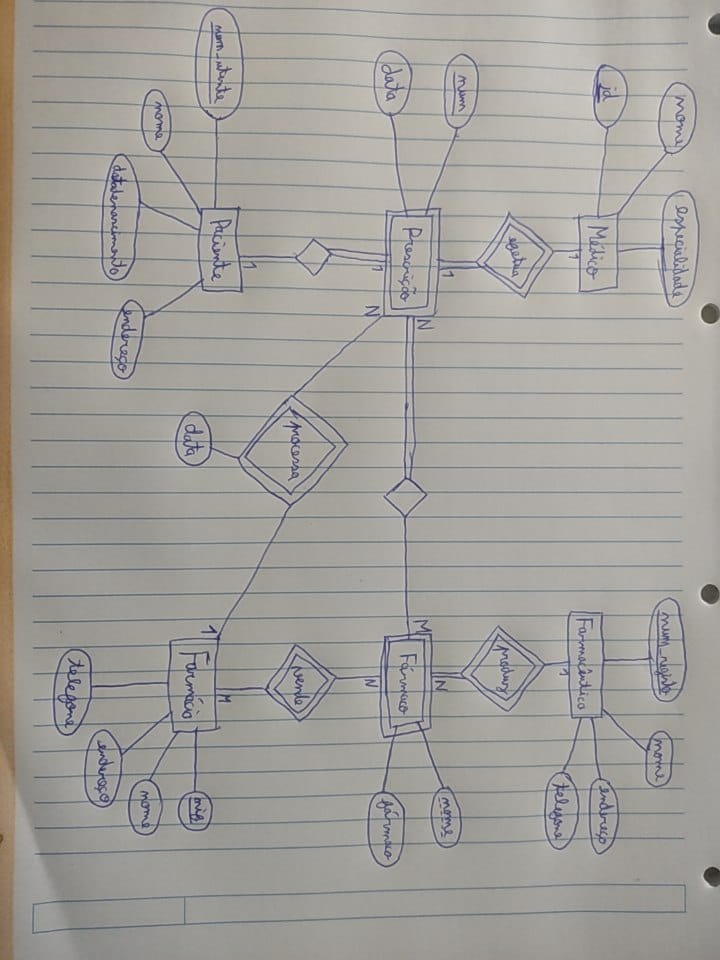 nome
especialidade
id
Médico
1
efetua
1
num
data
Prescrição
N
N
1
1
num_utente
Paciente
nome
datadenascimento
endereço
processa
data
num_registo
nome
endereço
telefone
Farmacêutico
1
produz
N
M
Fármaco
nome
fármaco
N
vende
M
1
Farmácia
nif
nome
endereço
telefone